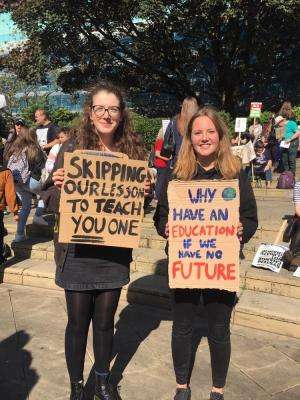 SKIPPING
OUR LESSON
TO TEACH
YOU ONE
WHY
HAVE AN
EDUCATION
IF WE
HAVE NO
FUTURE